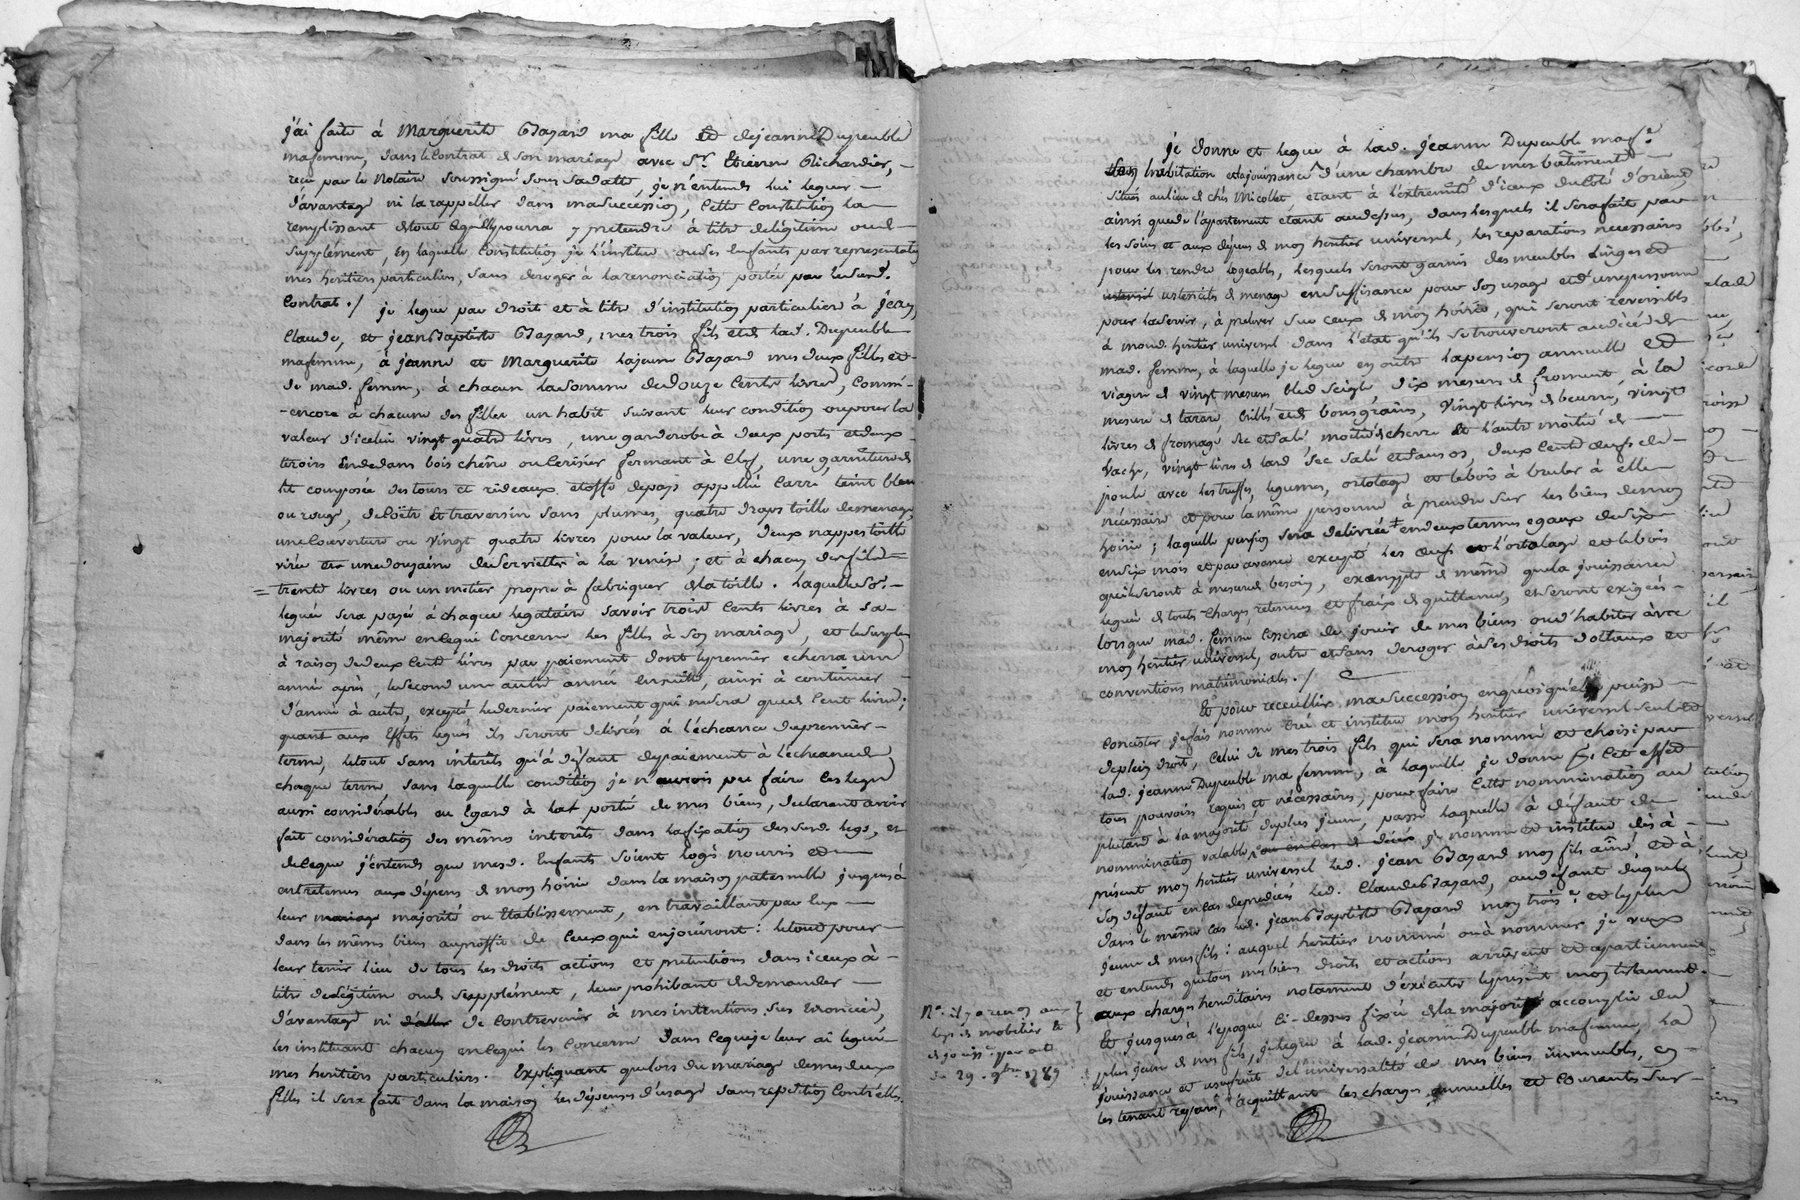 j'ai faite à Marguerite Chazard ma fille et de jeanne Dupeuble
ma femme, dans le contrat de son mariage avec Sr. Etienne Richardier,
recu par le Notaire soussigné sous sa datte, je n'entends lui leguer
d'avantage ni la rappeller dans ma succession, cette Constitution la
remplissant de tout ce qu'elle pourra y pretendre à titre de légitime ou de
supplément, en laquelle Constitution je l'institue ou ses enfants par representation
mes heritiers particuliers, sans deroger à la renonciation portée par le susd.
Contrat ./ je legue par droit et à titre d'institution particuliere à jean,
Claude, et jean Baptiste Chazard, mes trois fils et de lad. Dupeuble
ma femme, à jeanne et Marguerite la jeune Chazard mes deux filles et
de mad. femme, à chacun la somme de douze Cents livres, Comm-
-encore à chacune des filles un habit suivant leur condition ou pour la
valeur d'icelui vingt quatre livres, une garderobe à deux portes et deux
tiroirs en dedans bois chêne ou Cerisier fermant à Clef, une garniture de
lit composée de tours et rideaux etoffe du pays appellée Carré teint bleu
ou rouge, de Coëtre et traversin sans plumes, quatre draps toille de menage,
une Couverture ou vingt quatre livres pour la valeur, deux nappes toille
une douzaine de serviettes à la venise ; et à chacun des fils
= trente livres ou un metier propre à fabriquer de la toille. Laquelle so.
leguée sera payée à chaque legataire savoir trois Cents livres à sa
majorité même en ce qui Concerne les filles à son mariage, et le surplus
à raison de deux Cents livres par paiement dont le premier echerra une
année après, le second une autre année ensuitte, ainsi à continuer
d'année à autre, excepté le dernier paiement qui ne sera que de Cent livres ;
quant aux Effets legués ils seront delivrés à l'écheance du premier
terme, le tout sans interêts qu'à deffaut de paiement à l'echeance de
chaque terme, sans laquelle condition je n'aurois pu faire les legs
aussi considérables eu Egard à la portée de mes biens, declarant avoir
fait considération des mêmes interêts dans la fixation des susd. legs, et
de ce que j'entends que mesd. Enfants soient logés nourris et
entretenus aux dépens de mon hoirie dans la maison paternelle jusques à
leur mariage majorité ou Etablissement, en travaillant par eux
dans les mêmes biens au proffit de Ceux qui en jouiront : le tout pour
leur tenir lieu de tous les droits actions et pretentions dans iceux à
titre de légitime ou de supplément, leur prohibant de demander
d'avantage ni d'aller de Contrevenir à mes intentions sus enoncées,
les instituant chacun en ce qui les Concerne dans ce que je leur ai legué
mes heritiers particuliers. Expliquant que lors du mariage de mes deux
filles il sera fait dans la maison les dépenses d'usage sans repetition Contr'elles.
je donne et legue à lad. jeanne Dupeuble ma fe.
habitation et la jouissance d'une chambre de mes batiments
situés au lieu de chés Micollet, etant à l'extremité d'iceux du Coté d'orient,
ainsi que de l'appartement etant au dessus, dans lesquels il sera fait par
les soins et aux dépens de mon heritier universel, les reparations necessaires
pour les rendre logeables, lesquels seront garnis des meubles linges et
ustensil ustenciles de menage en suffisance pour son usage et d'une personne
pour la servir, à prelever sur ceux de mon hoirie, qui seront reversibles
à mond. heritier universel dans l'etat qu'ils se trouveront au décés de
mad. femme, à laquelle je legue en outre la pension annuelle et
viagere de vingt mesures bled seigle, dix mesures de froment à la
mesure de tarare criblés et de bons grains, vingt livres de beurre, vingt
livres de fromage sec et salé moitié chevre et l'autre moitié de
vache, vingt livres de lard sec salé et sans os, deux Cents oeufs de
poule avec les truffes, legumes, ortolage et le bois à bruler à elle
nécessaire et pour la même personne à prendre sur les biens de mon
hoirie ; laquelle pension sera delivrée en deux termes egaux de six
en six mois et par avance excepté les oeufs l'ortolage et le bois
qui le seront à mesure de besoin, exempte de même que la jouissance
leguée de toutes charges, retenues et fraix de quittance, et seront exigés
lorsque mad. femme cessera de jouir de mes biens ou d'habiter avec
mon heritier universel, outre et sans deroger à ses droits dottaux et
conventions matrimoniales. /
Et pour receuillir ma succession en quoi qu'elle puisse
Consister je fais nomme crée et institue mon heritier universel seul et
de plein droit, Celui de mes trois fils qui sera nommé et choisi par
lad. jeanne Dupeuble ma femme, à laquelle je donne à Cet effet
tous pouvoirs requis et nécessaires, pour faire Cette nommination au
plutard à la majorité du plus jeune, passé laquelle à deffaut de
nommination valable, ou en cas de décés je nomme et institue dès à
présent mon heritier universel led. jean Chazard mon fils ainé et à
son deffaut en cas de predécés led. Claude Chazard, au deffaut duquel
dans le même cas led. jean Baptiste Chazard mon trois.e et le plus
jeune de mes fils : auquel heritier nommé ou à nommer je veux
et entends que tous mes biens droits et actions arrivent et apartiennent
aux charges hereditaires notament d'éxécuter le present mon testament.
Et jusques à l'epoque Ci-dessus fixée de la majorité accomplie du
plus jeune de mes fils, je legue à lad. jeanne Dupeuble ma femme, la
jouissance et usufruit de l'universalité de mes biens immeubles, en
les tenant reparés, acquittant les charges annuelles et Courantes sur
Na. il y a
legs de mobilier
de jouiss. par act
du 29. 9bre 1789